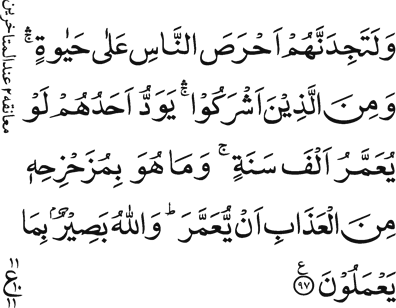 وَلَتَجِدَنَّهُمْ اَحْرَصَ النَّاسِ عَلٰى حَيٰوةٍ ۛۚ
وَمِنَ الَّذِيْنَ اَشْرَكُوْا ۛۚ يَوَدُّ اَحَدُهُمْ لَوْ
يُعَمَّرُ اَلْفَ سَنَةٍ ۚ وَمَا هُوَ بِمُزَحْزِحِهٖ
مِنَ الْعَذَابِ اَنْ يُّعَمَّرَ ؕ وَاللّٰهُ بَصِيْرٌۢ بِمَا
يَعْمَلُوْنَ ﴿۹۷﴾ ع
معانقه ۲ عند المتاخرين
۱۱
ع
۱۱